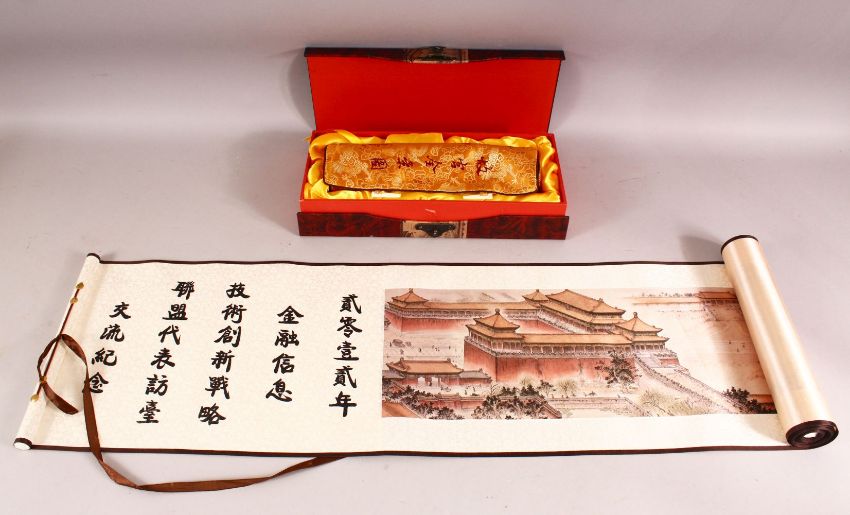 故宮全景圖
貳零壹貳年
金融信息
技術創新戰略
聯盟代表訪臺
交流紀念